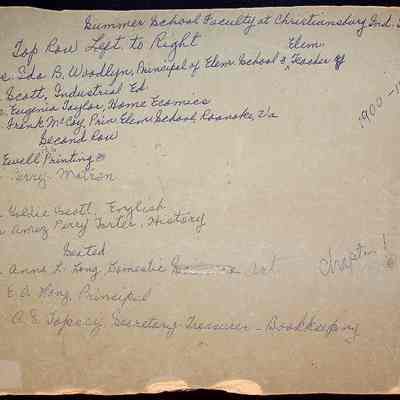 Summer School Faculty at Christiansburg Ind. S
Top Row Left to Right
Elem.
s. Ida B. Woodlyn, Principal of Elem School & Teacher of
Scott, Industrial Ed.
s. Eugenia Taylor, Home Ecomics
. Frank McCoy, Prin Elem School, Roanoke, Va
Second Row
Ewell Printing
Perry - Matron
Goldie Scott, English
Amez Perry Porter, History
Seated
Anna L. Long Domestic Art
E. A. Long, Principal
A. E. Secretary-Treasurer - Bookkeeping
1900 -